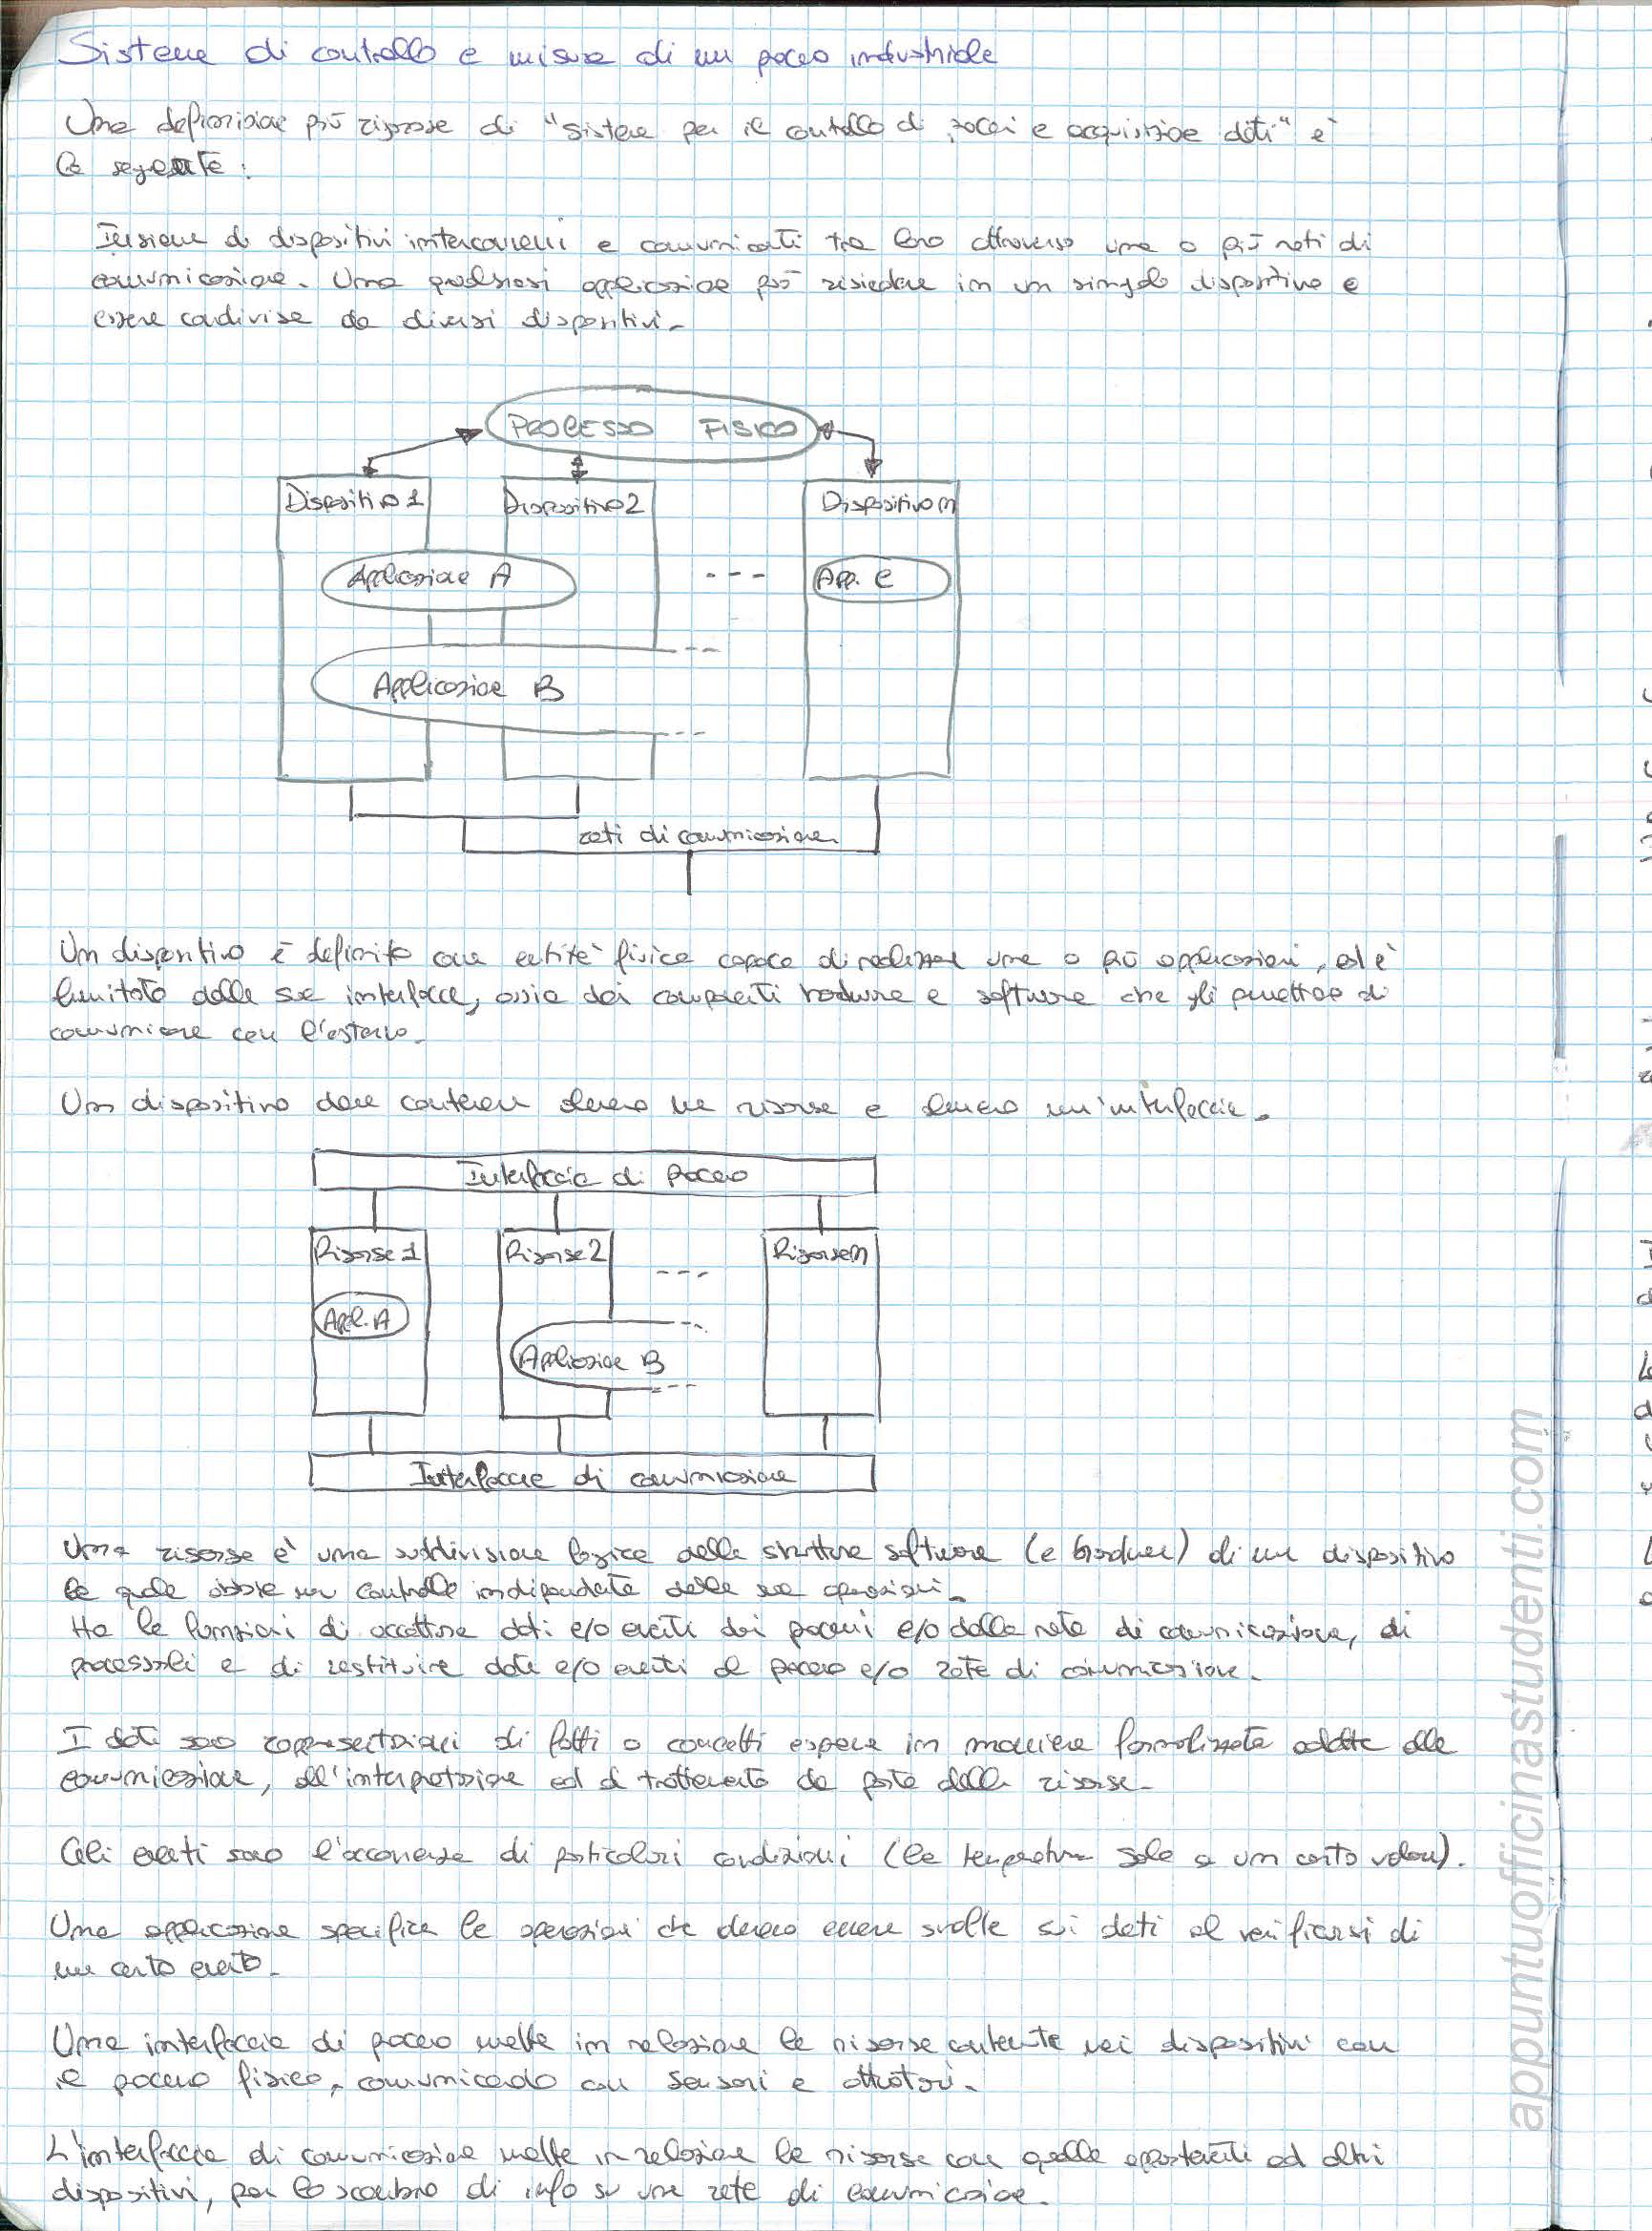 Sistema di controllo e misura di un processo industriale
Una definizione più rigorosa di "sistema per il controllo di processi e acquisizione dati" è
la seguente:
Insieme di dispositivi interconnessi e comunicanti tra loro attraverso una o più reti di
comunicazione. Una qualsiasi applicazione può risiedere in un singolo dispositivo o
essere condivisa da diversi dispositivi.
PROCESSO FISICO
Dispositivo 1 Dispositivo 2 Dispositivo n
Applicazione A --- App. C
Applicazione B
reti di comunicazione
Un dispositivo è definito come entità fisica capace di realizzare una o più applicazioni, ed è
limitato dalle sue interfacce, ossia dai componenti hardware e software che gli permettono di
comunicare con l'esterno.
Un dispositivo deve contenere almeno una risorsa e almeno un'interfaccia.
Interfaccia di processo
Risorsa 1 Risorsa 2 --- Risorsa n
Appl. A
Applicazione B
Interfaccia di comunicazione
Una risorsa è una suddivisione logica della struttura software (e hardware) di un dispositivo
la quale abbia un controllo indipendente delle sue operazioni.
Ha le funzioni di accettare dati e/o eventi dai processi e/o dalla rete di comunicazione, di
processarli e di restituire dati e/o eventi al processo e/o rete di comunicazione.
I dati sono rappresentazioni di fatti o concetti espressi in maniera formalizzata adatta alla
comunicazione, all'interpretazione ed al trattamento da parte della risorsa.
Gli eventi sono l'occorrenza di particolari condizioni (la temperatura sale a un certo valore).
Una applicazione specifica le operazioni che devono essere svolte sui dati al verificarsi di
un certo evento.
Una interfaccia di processo mette in relazione le risorse contenute nei dispositivi con
il processo fisico, comunicando con sensori e attuatori.
L'interfaccia di comunicazione mette in relazione le risorse con quelle appartenenti ad altri
dispositivi, per lo scambio di info su una rete di comunicazione.
appuntuofficinastudenti.com